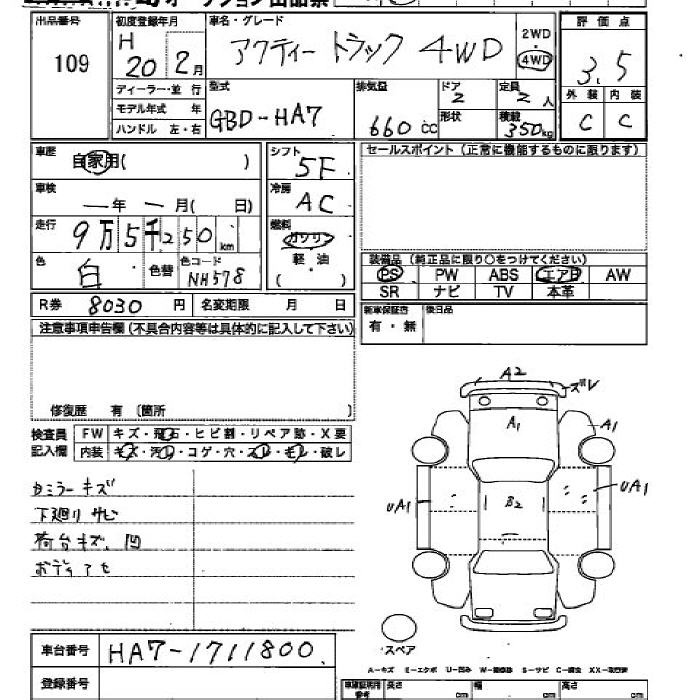 出品番号
109
初度登録年月
H
20 2月
ディーラー・並 行
モデル年式 年
ハンドル 左・右
車名・グレード
アクティー トラック 4WD
2WD
・
4WD
型式
GBD-HA7
排気量
660 cc
ドア
2
形状
定員
2 人
積載
350kg
評 価 点
3.5
外 装 内 装
C C
車歴
自家用( )
車検
―年 ―月( 日)
走行
9万5千250km
色
白
色替
色コード
NH578
シフト
5F
冷房
AC
燃料
ガソリン
軽・油
( )
セールスポイント (正常に機能するものに限ります)
装備品 (純正品に限り○をつけてください)
PS PW ABS エアB AW
SR ナビ TV 本革
R券 8030 円 名変期限 月 日
新車保証書
有・無
後日品
注意事項申告欄 (不具合内容等は具体的に記入して下さい)
修復歴 有 (箇所 )
検査員
記入欄
FW キズ・飛石・ヒビ割・リペア跡・X要
内装 キズ・汚れ・コゲ・穴・スレ・モレ・破レ
カミラーキズ
下廻りサビ
荷台キズ、凹
ボディアセ
A2
ズレ
A1
A1
UA1
B2
UA1
スペア
車台番号 HA7-1711800
登録番号
A－キズ E－エクボ U－凹み W－補修跡 S－サビ C－腐食 XX－取替済
長さ cm 幅 cm 高さ cm